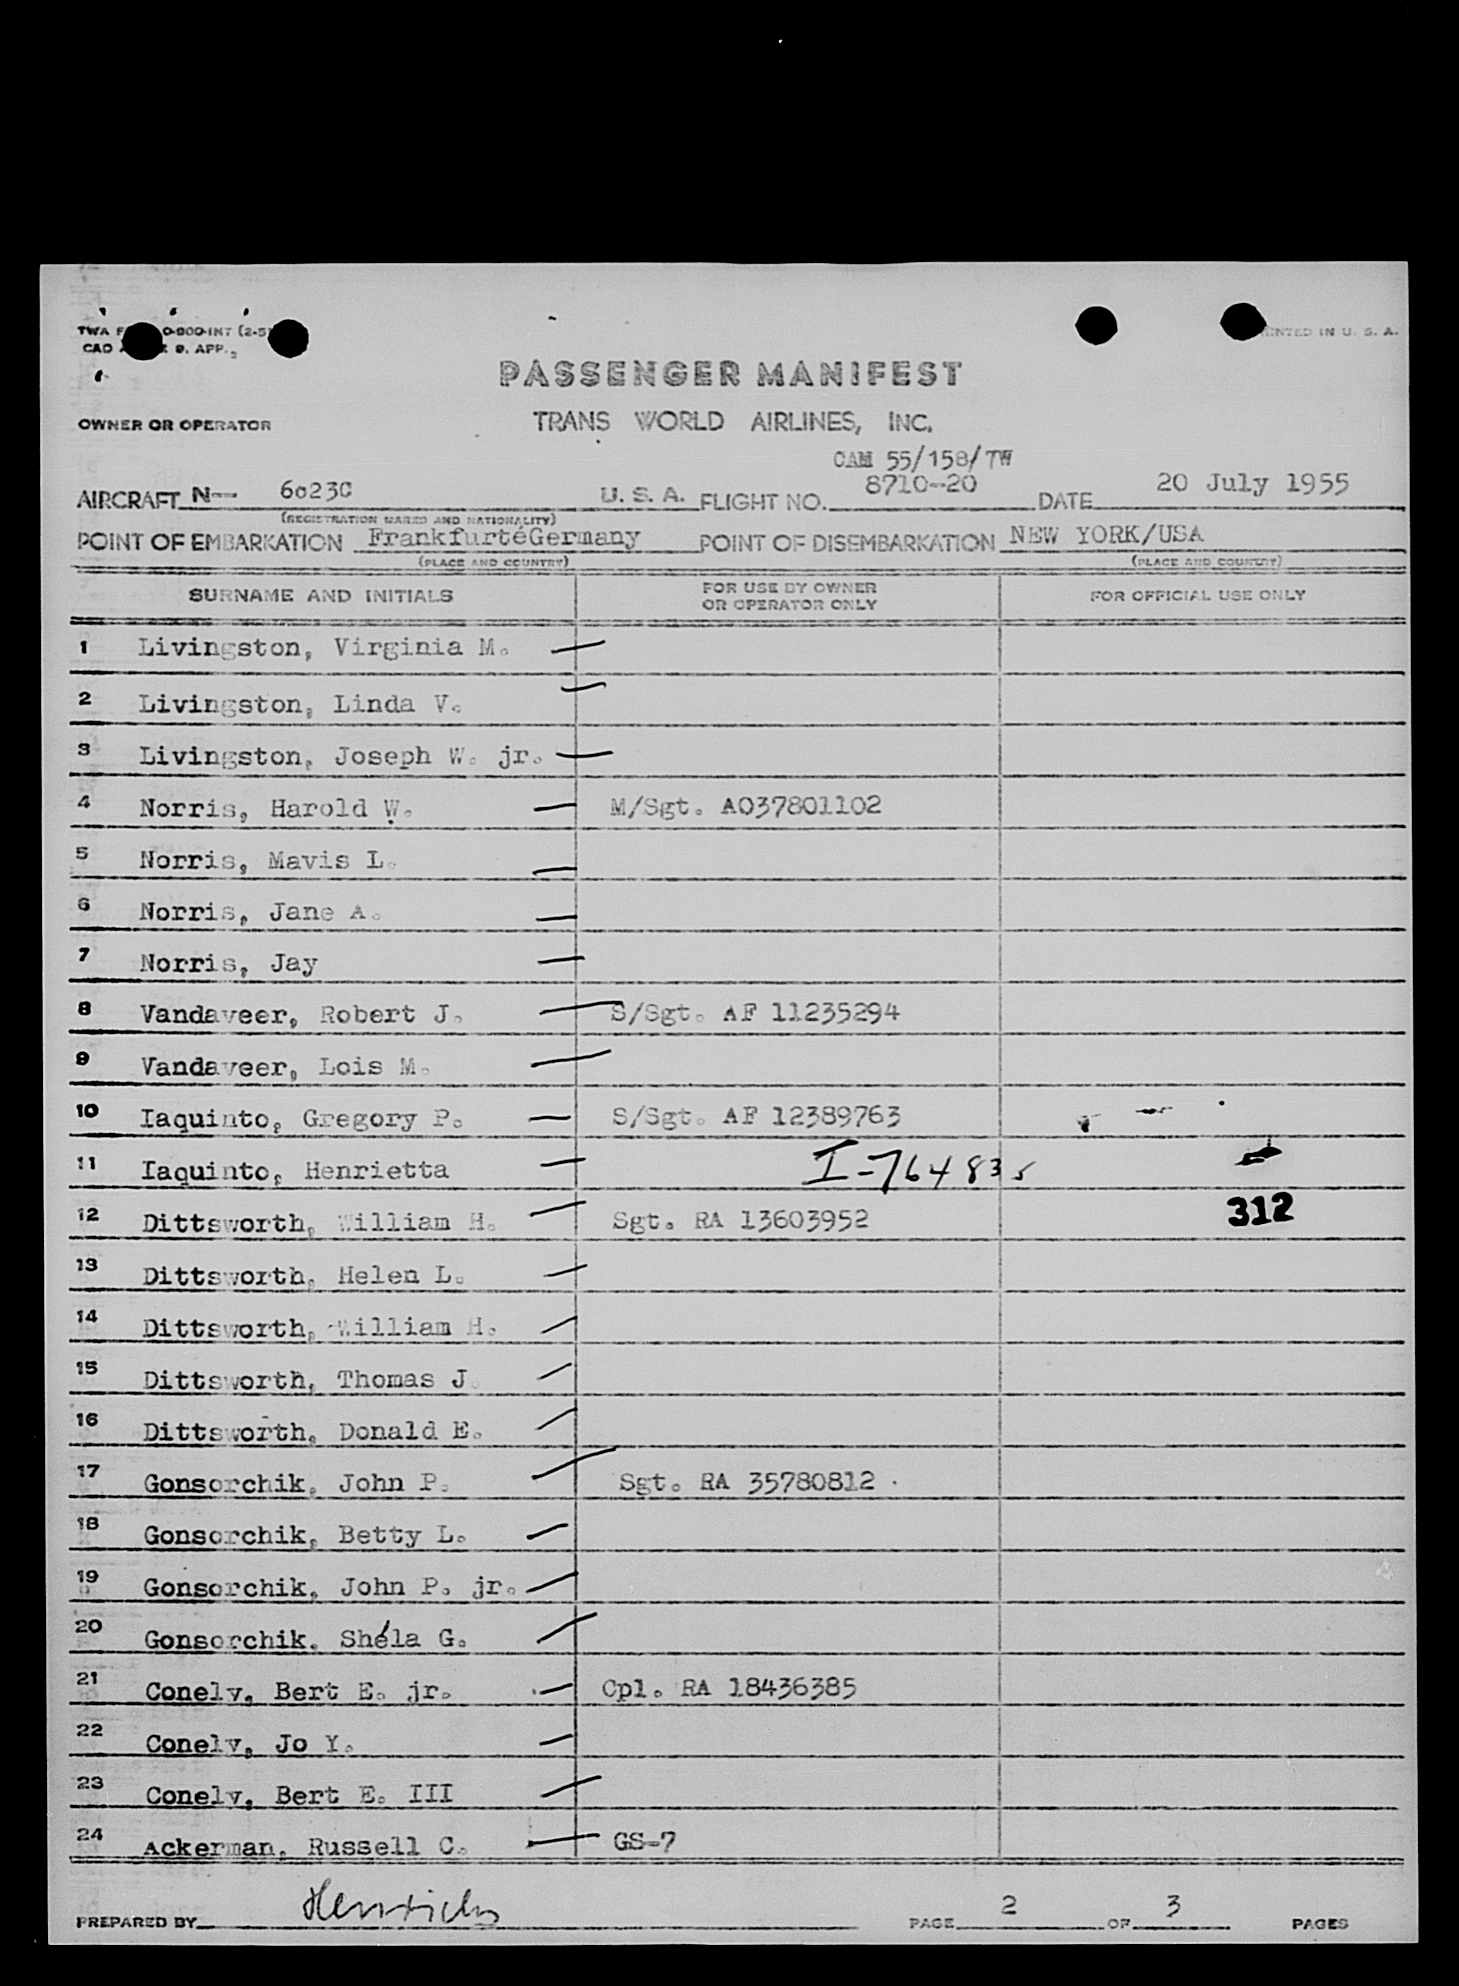 PRINTED IN U. S. A.
PASSENGER MANIFEST
OWNER OR OPERATOR TRANS WORLD AIRLINES, INC.
CAM 55/158/TW
AIRCRAFT N-- 6023C U. S. A. FLIGHT NO. 8710-20 DATE 20 July 1955
(REGISTRATION MARKS AND NATIONALITY)
POINT OF EMBARKATION FrankfurtéGermany POINT OF DISEMBARKATION NEW YORK/USA
(PLACE AND COUNTRY) (PLACE AND COUNTRY)
SURNAME AND INITIALS FOR USE BY OWNER OR OPERATOR ONLY FOR OFFICIAL USE ONLY
1 Livingston, Virginia M.
2 Livingston, Linda V.
3 Livingston, Joseph W. jr.
4 Norris, Harold W. M/Sgt. AO37801102
5 Norris, Mavis L.
6 Norris, Jane A.
7 Norris, Jay
8 Vandaveer, Robert J. S/Sgt. AF 11235294
9 Vandaveer, Lois M.
10 Iaquinto, Gregory P. S/Sgt. AF 12389763
11 Iaquinto, Henrietta I-764835
12 Dittsworth, William H. Sgt. RA 13603952 312
13 Dittsworth, Helen L.
14 Dittsworth, William H.
15 Dittsworth, Thomas J.
16 Dittsworth, Donald E.
17 Gonsorchik, John P. Sgt. RA 35780812
18 Gonsorchik, Betty L.
19 Gonsorchik, John P. jr.
20 Gonsorchik, Shéla G.
21 Conely, Bert E. jr. Cpl. RA 18436385
22 Conely, Jo Y.
23 Conely, Bert E. III
24 Ackerman, Russell C. GS-7
PREPARED BY Henrichs PAGE 2 OF 3 PAGES